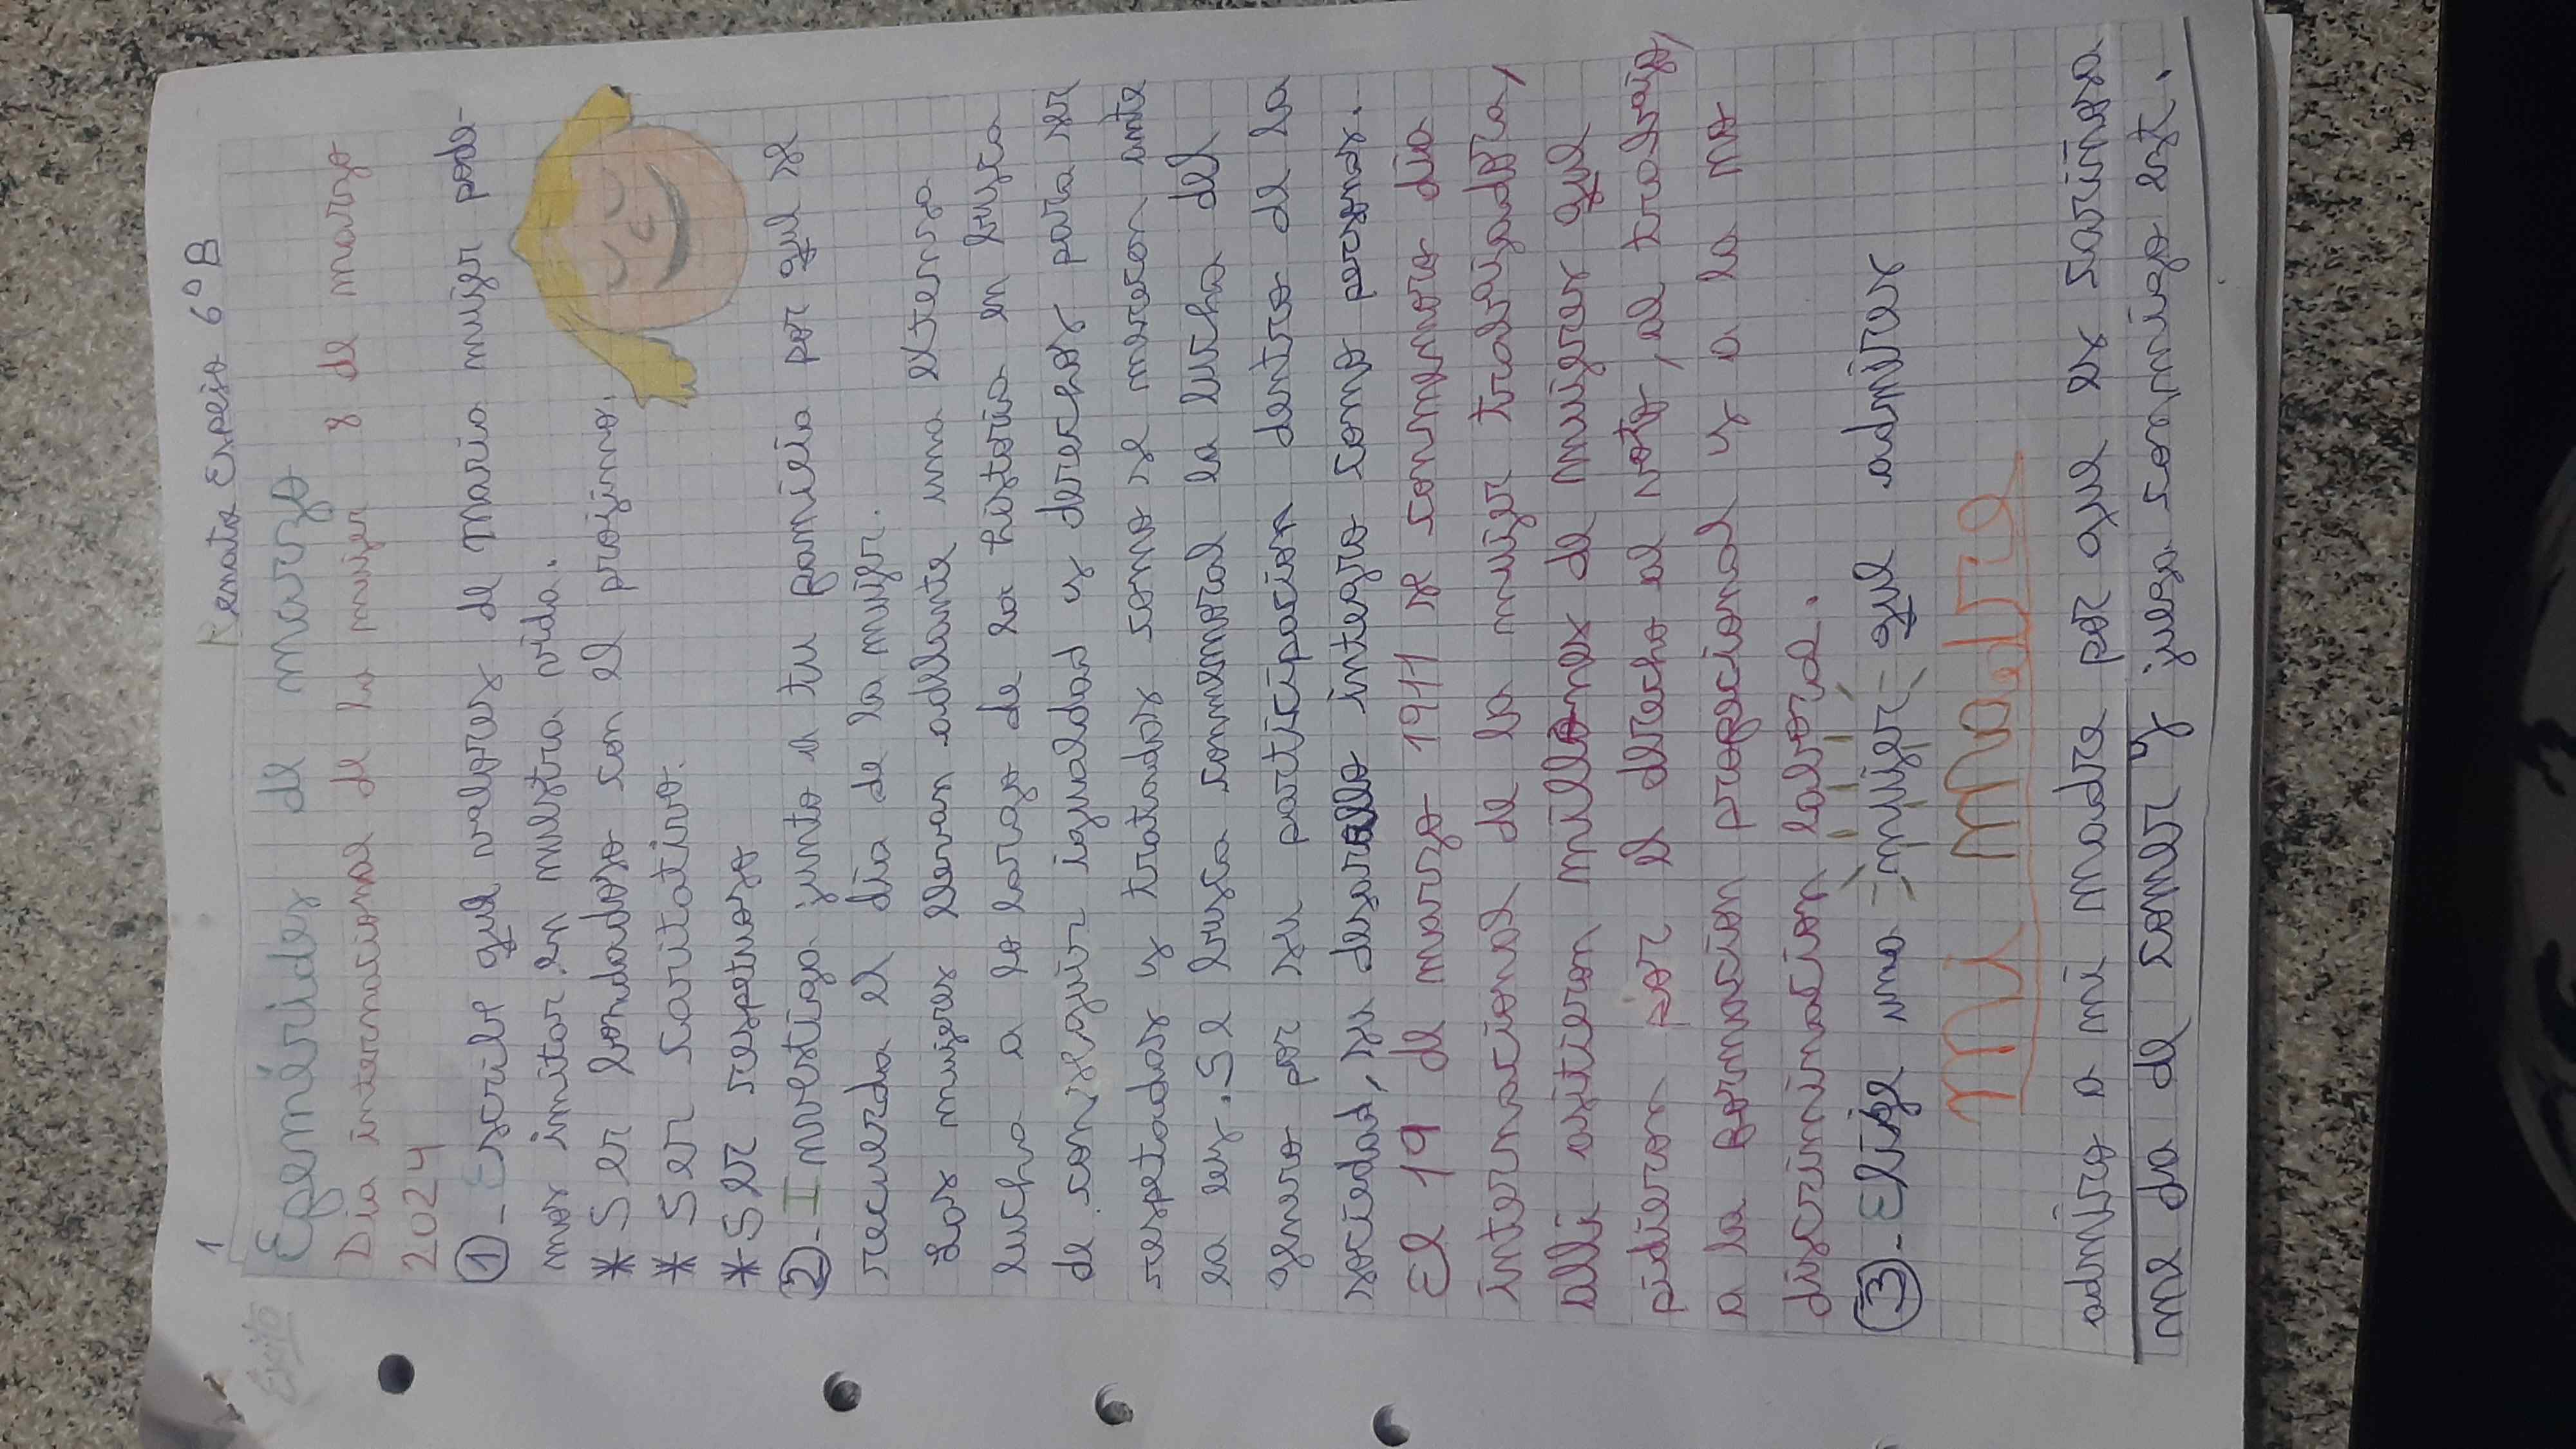 1
Renata Espejo 6°B
Exito
Efemérides de marzo
Dia internacional de la mujer 8 de marzo
2024
1- Escribe que valores de Maria mujer pode-
mos imitar en nuestra vida.
* Ser bondadoso con el projimo.
* Ser caritativo.
* Ser respetuoso
2- Investiga junto a tu familia por que se
recuerda el dia de la mujer.
Las mujeres llevan adelante una extensa
lucha a lo largo de la historia en busca
de conseguir igualdad y derechos para ser
respetadas y tratadas como se merecen ante
la ley. Se busca conmemorar la lucha del
genero por su participacion dentro de la
sociedad, su desarollo integro como persona.
El 19 de marzo 1911 se conmemoro dia
internacional de la mujer trabajadora,
alli asitieron millones de mujeres que
pidieron por el derecho al voto, al trabajo,
a la formacion profecional y a la no
discriminacion laboral.
3- Elige una mujer que admires
Mi Madre
admiro a mi madre por que es cariñosa
me da de comer y juega conmigo ect.